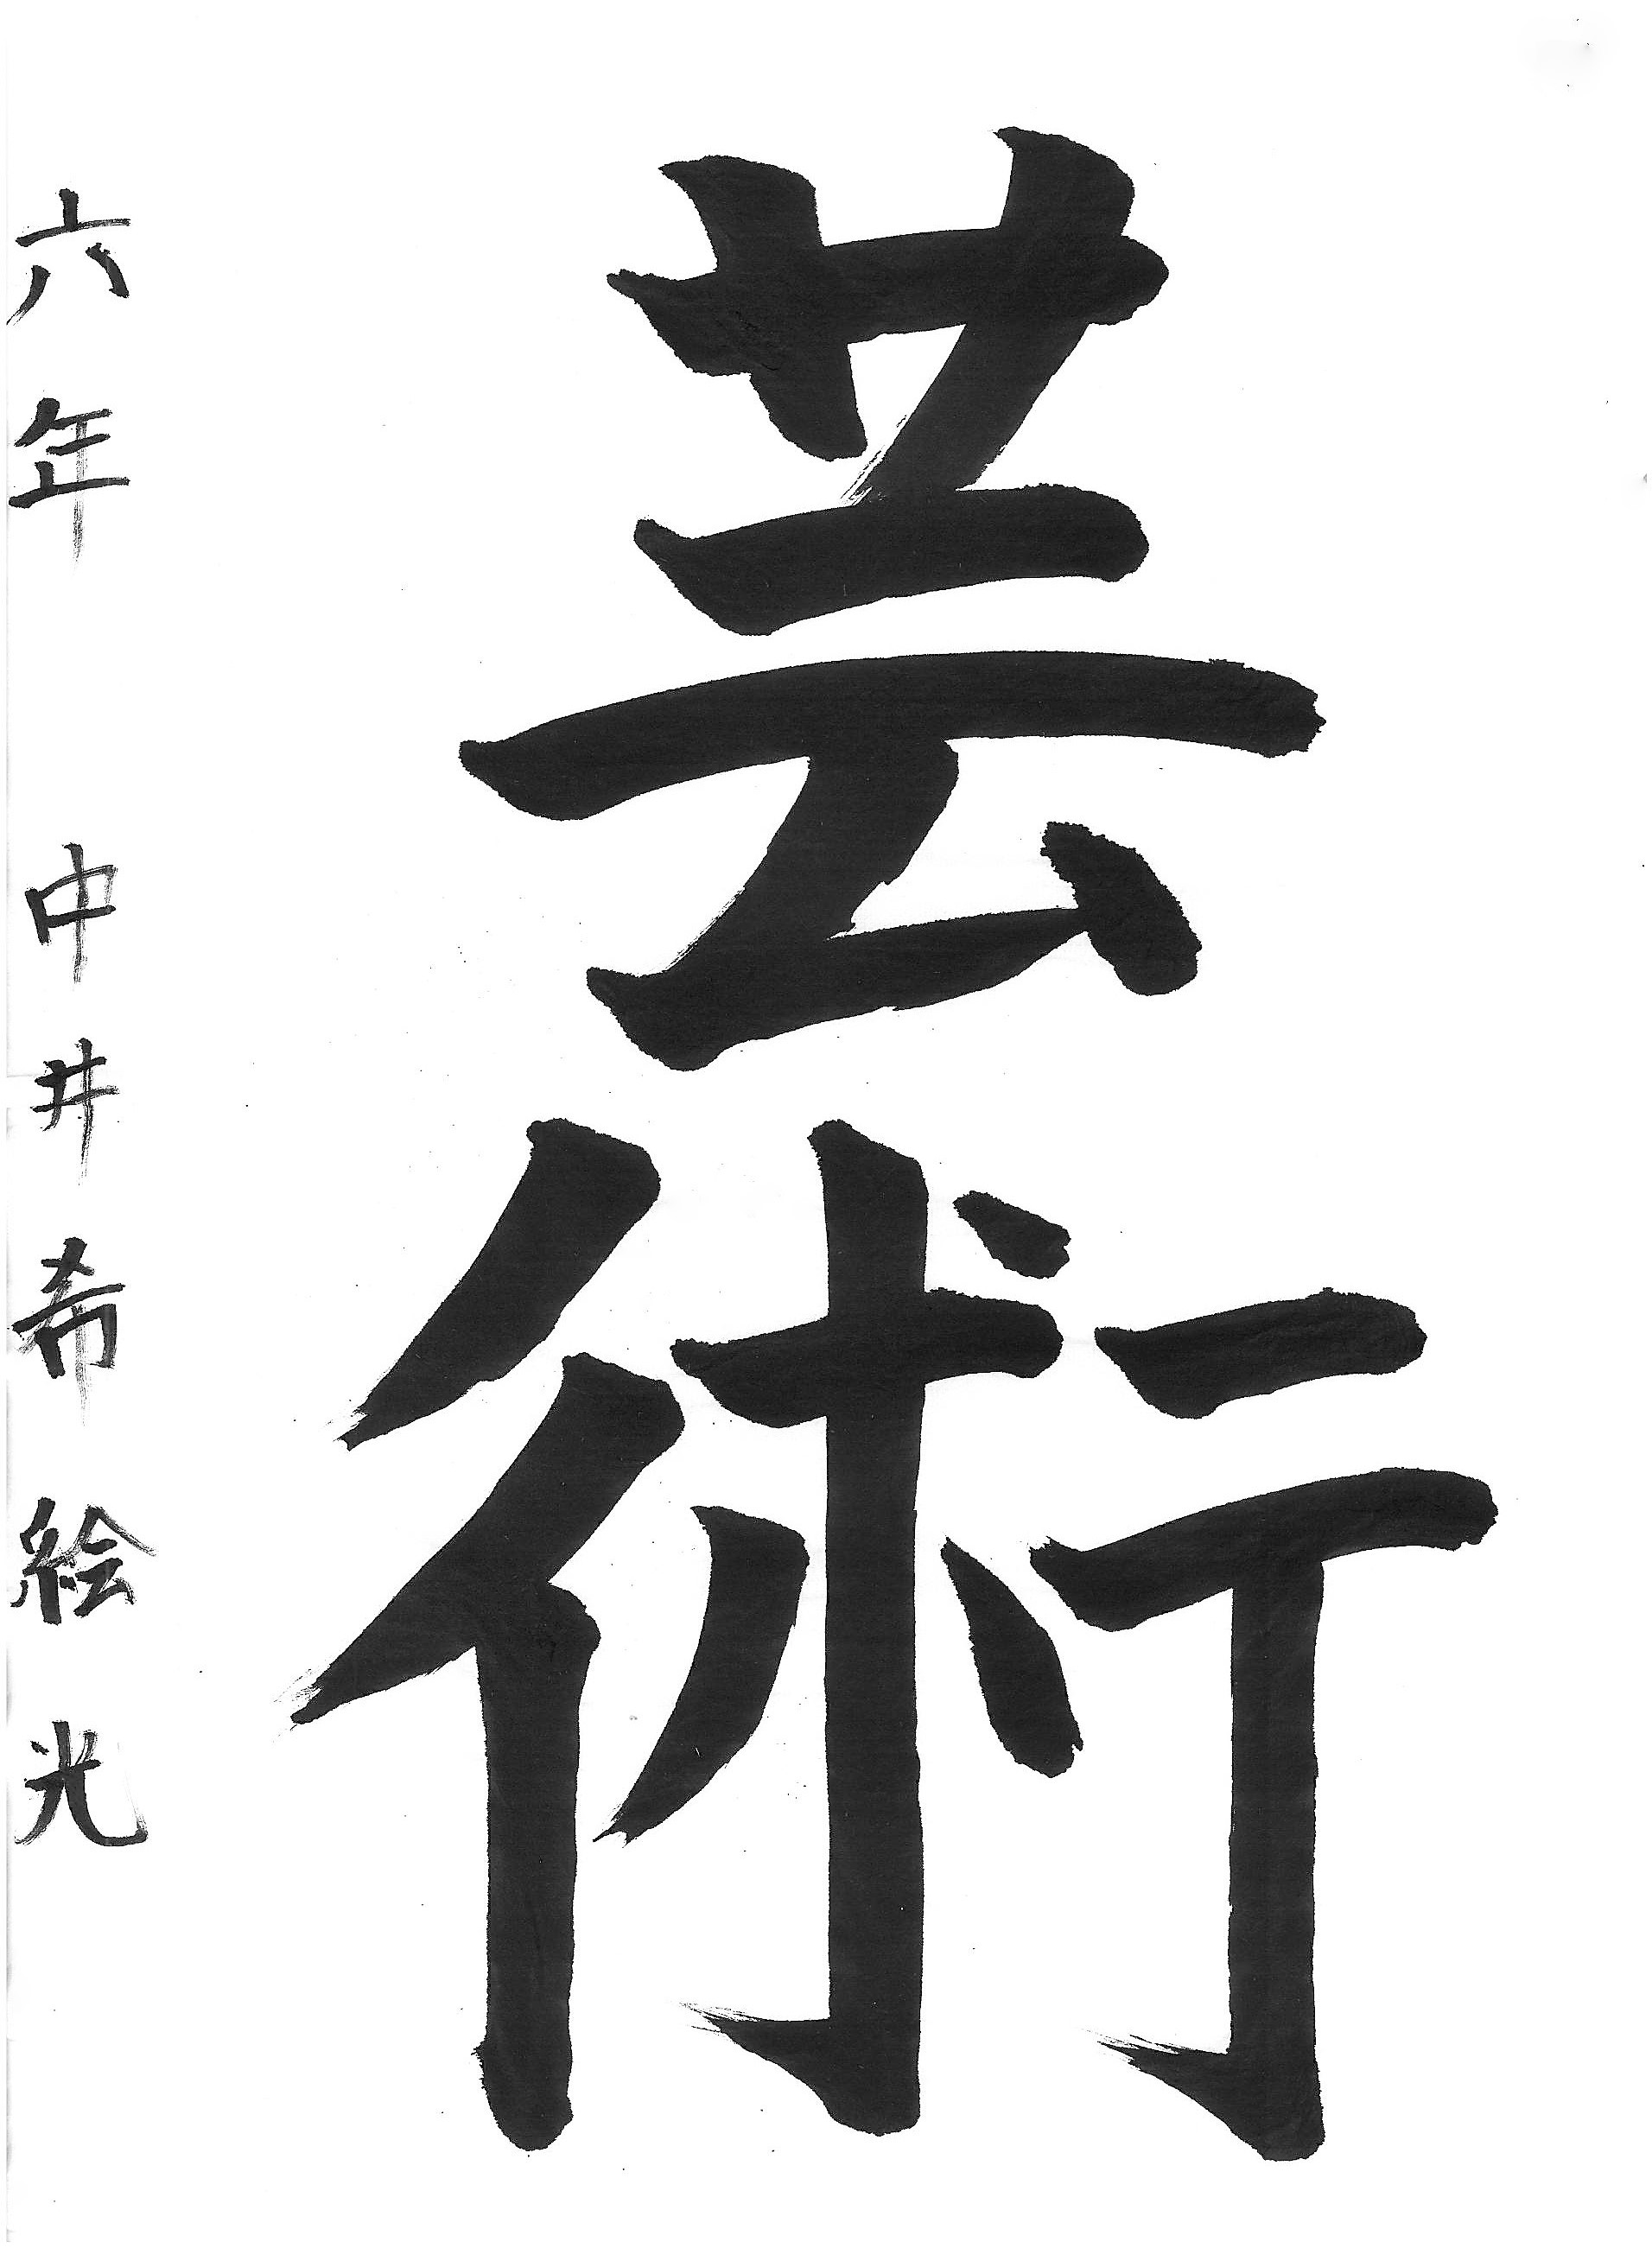 芸術
六年 中井希絵光